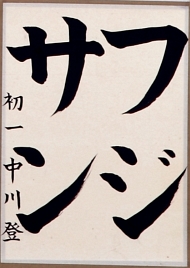 フジ
サン
初一中川登